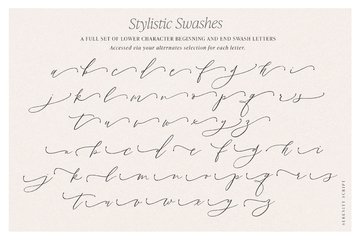 Stylistic Swashes
A FULL SET OF LOWER CHARACTER BEGINNING AND END SWASH LETTERS
Accessed via your alternates selection for each letter.
a b c d e f g h i
j k l m n o p q r s
t u v w x y z
a b c d e f g h i
j k l m n o p q r s
t u v w x y z
SERENITY SCRIPT